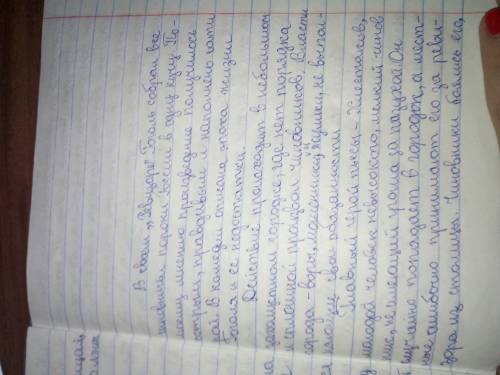 В своем „Ревизоре" Гоголь собрал все
пороки России в одну кучу. По-
моему мнению произведение получилось
острым, правдивым и наполнено сати-
рой. В комедии описана эпоха жизни
Гоголя и ее недостатки.
Действие происходит в небольшом
захолустном городке, где нет порядка
и сплошной произвол чиновников. Власти
города - воры, мошенники и жулики, не выпол-
няющие свои обязанности.
Главный герой пьесы - Хлестаков,
молодой человек невысокого, мелкий чинов-
ник, не имеющий гроша за пазухой. Он
случайно попадает в городок, а мест-
ные ошибочно принимают его за реви-
зора из столицы. Чиновники боялись его,